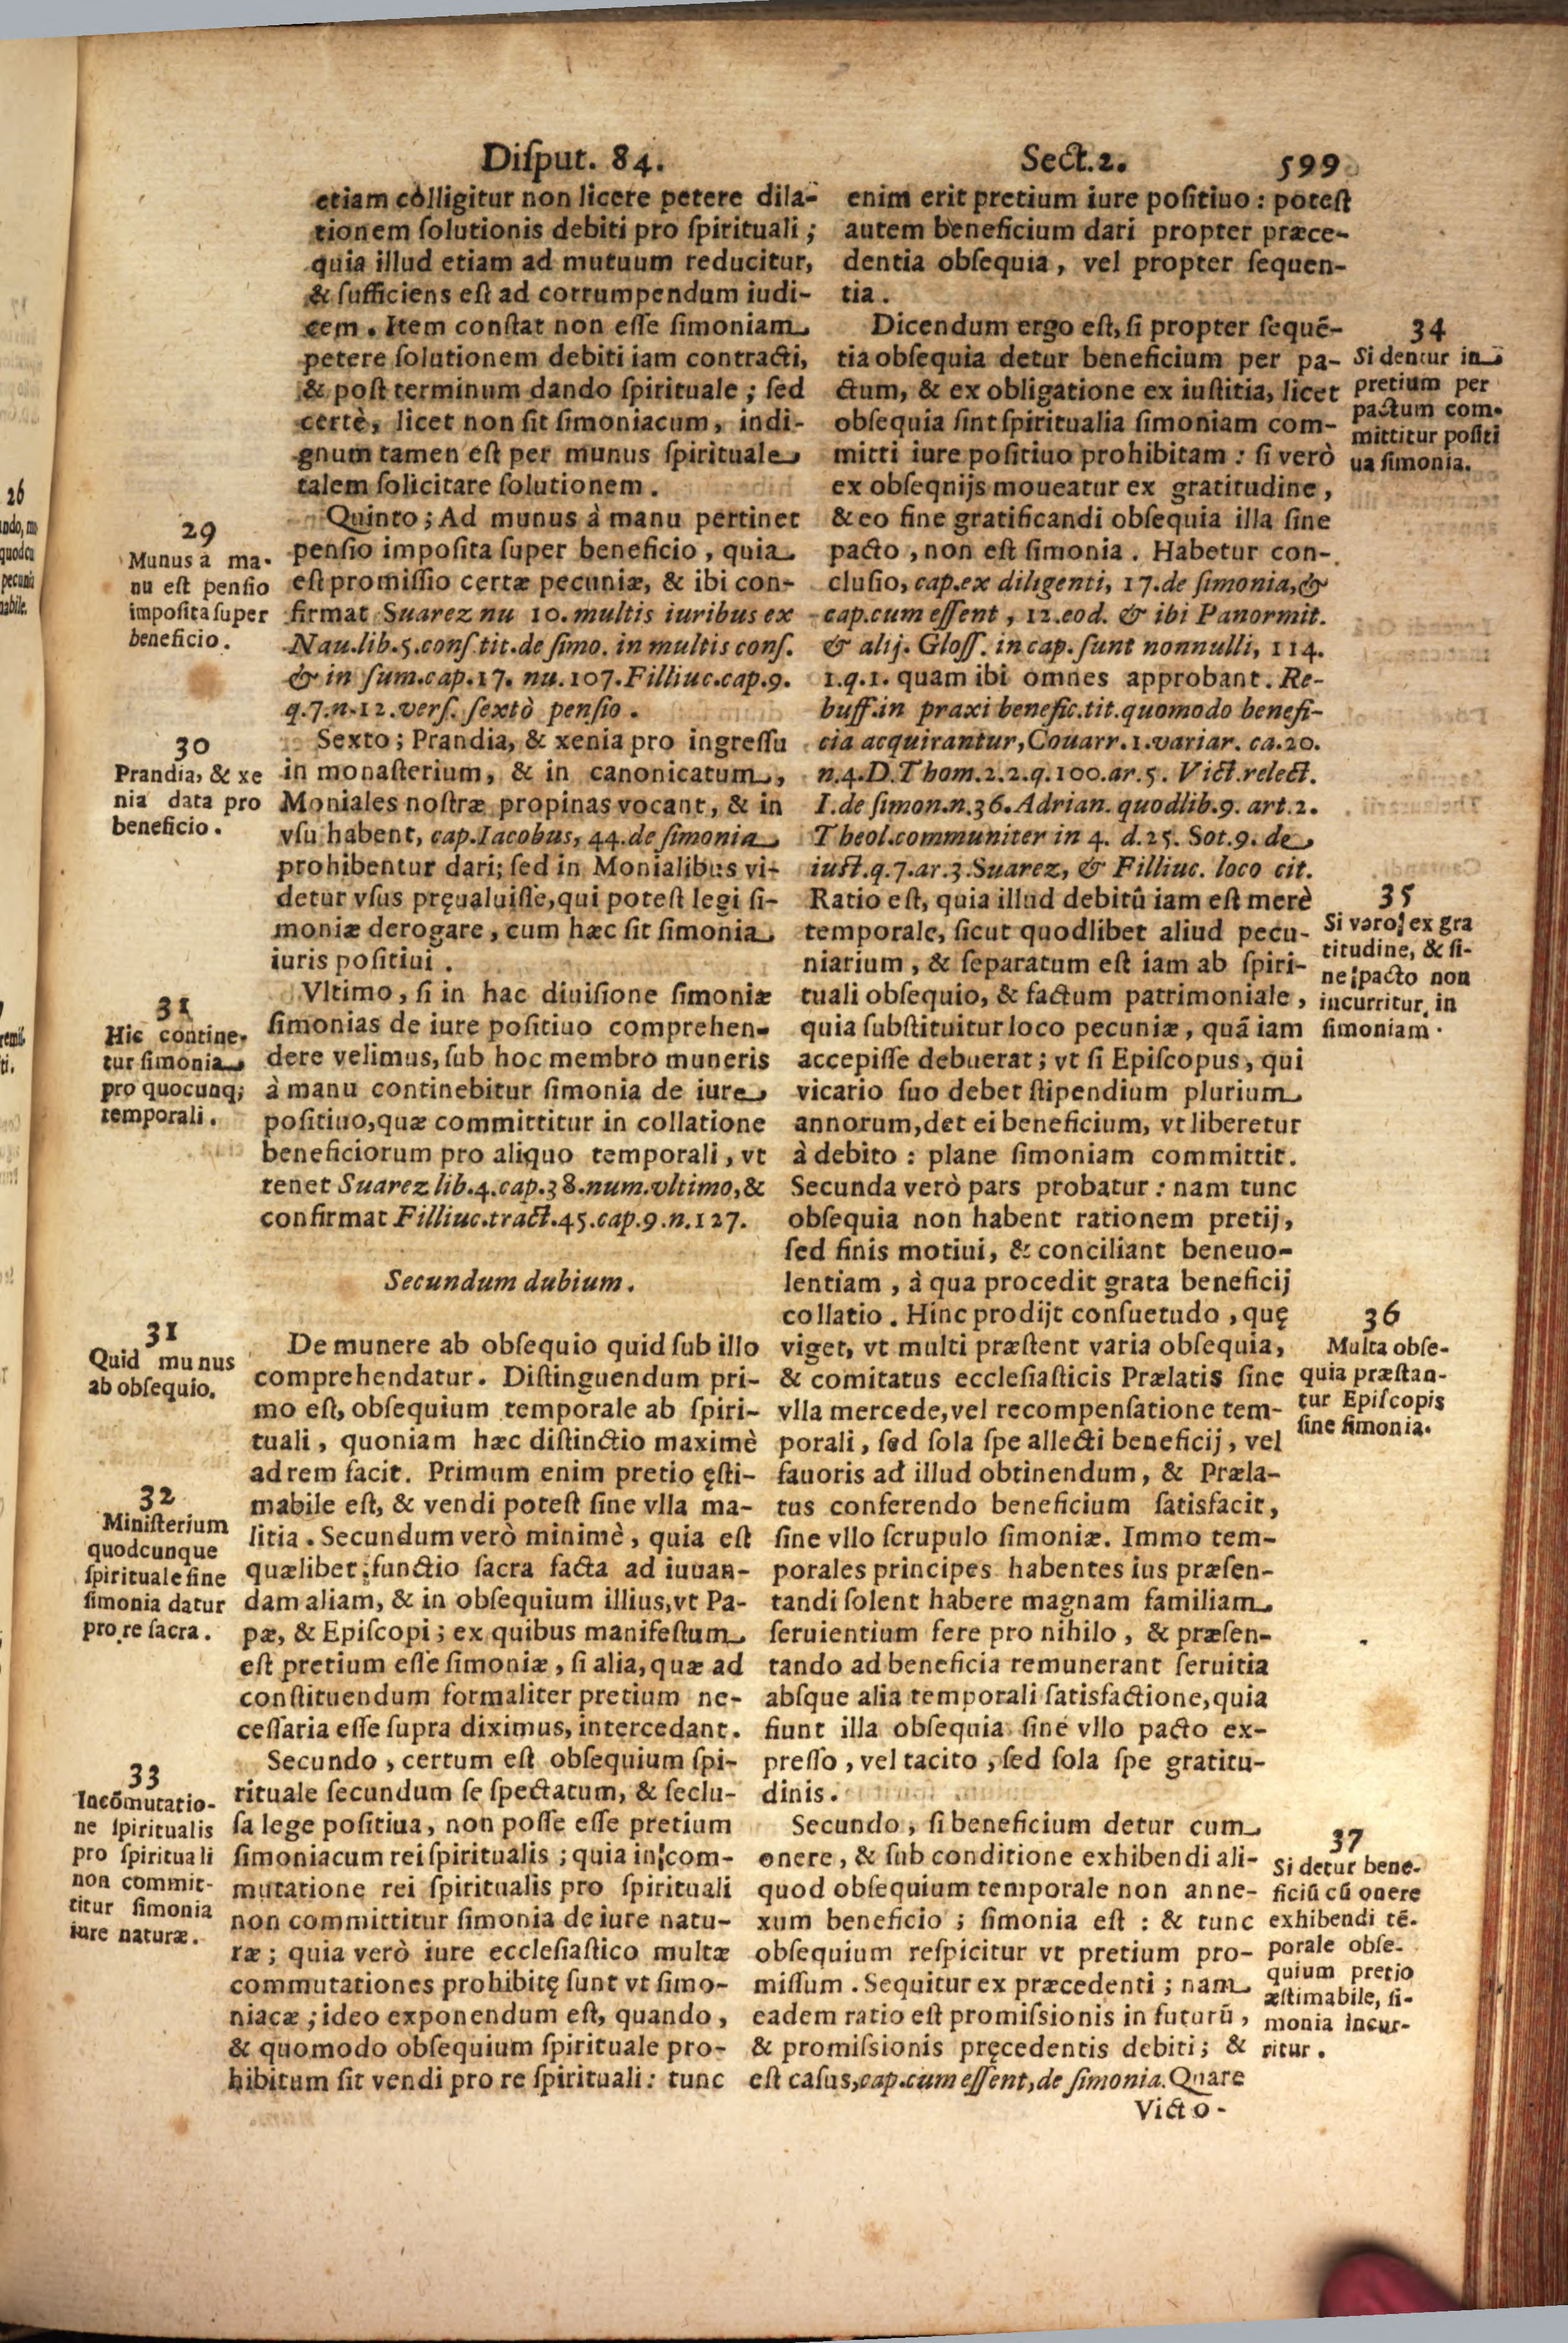 Disput. 84.
Sect.2.
599
etiam colligitur non licere petere dila-
tionem solutionis debiti pro spirituali;
quia illud etiam ad mutuum reducitur,
& sufficiens est ad corrumpendum iudi-
cem. Item constat non esse simoniam
petere solutionem debiti iam contracti,
& post terminum dando spirituale; sed
certè, licet non sit simoniacum, indi-
gnum tamen est per munus spirituale
talem solicitare solutionem.
29
Munus à ma-
nu est pensio
imposita super
beneficio.
Quinto; Ad munus à manu pertinet
pensio imposita super beneficio, quia
est promissio certæ pecuniæ, & ibi con-
firmat Suarez nu 10. multis iuribus ex
Nau.lib.5.cons.tit.de simo. in multis cons.
& in sum.cap.17. nu.107.Filliuc.cap.9.
q.7.n.12.vers. sextò pensio.
30
Prandia, & xe
nia data pro
beneficio.
Sexto; Prandia, & xenia pro ingressu
in monasterium, & in canonicatum,
Moniales nostræ propinas vocant, & in
vsu habent, cap.Iacobus, 44.de simonia
prohibentur dari; sed in Monialibus vi-
detur vsus pręualuisse, qui potest legi si-
moniæ derogare, cum hæc sit simonia
iuris positiui.
31
Hic contine-
tur simonia
pro quocunq;
temporali.
Vltimo, si in hac diuisione simoniæ
simonias de iure positiuo comprehen-
dere velimus, sub hoc membro muneris
à manu continebitur simonia de iure
positiuo, quæ committitur in collatione
beneficiorum pro aliquo temporali, vt
tenet Suarez lib.4.cap.38.num.vltimo, &
confirmat Filliuc.tract.45.cap.9.n.127.
Secundum dubium.
31
Quid munus
ab obsequio.
De munere ab obsequio quid sub illo
comprehendatur. Distinguendum pri-
mo est, obsequium temporale ab spiri-
tuali, quoniam hæc distinctio maximè
ad rem facit. Primum enim pretio ęsti-
mabile est, & vendi potest sine vlla ma-
litia. Secundum verò minimè, quia est
quælibet functio sacra facta ad iuuan-
dam aliam, & in obsequium illius, vt Pa-
pæ, & Episcopi; ex quibus manifestum
est pretium esse simoniæ, si alia, quæ ad
constituendum formaliter pretium ne-
cessaria esse supra diximus, intercedant.
32
Ministerium
quodcunque
spirituale sine
simonia datur
pro re sacra.
33
Incõmutatio-
ne spiritualis
pro spirituali
non commit-
titur simonia
iure naturæ.
Secundo, certum est obsequium spi-
rituale secundum se spectatum, & seclu-
sa lege positiua, non posse esse pretium
simoniacum rei spiritualis; quia in com-
mutatione rei spiritualis pro spirituali
non committitur simonia de iure natu-
ræ; quia verò iure ecclesiastico multæ
commutationes prohibitę sunt vt simo-
niacæ; ideo exponendum est, quando,
& quomodo obsequium spirituale pro-
hibitum sit vendi pro re spirituali: tunc
enim erit pretium iure positiuo: potest
autem beneficium dari propter præce-
dentia obsequia, vel propter sequen-
tia.
Dicendum ergo est, si propter sequẽ-
tia obsequia detur beneficium per pa-
ctum, & ex obligatione ex iustitia, licet
obsequia sint spiritualia simoniam com-
mitti iure positiuo prohibitam: si verò
ex obseqnijs moueatur ex gratitudine,
& eo fine gratificandi obsequia illa sine
pacto, non est simonia. Habetur con-
clusio, cap.ex diligenti, 17.de simonia, &
cap.cum essent, 12.eod. & ibi Panormit.
& alij. Gloss. in cap. sunt nonnulli, 114.
1.q.1. quam ibi omnes approbant. Re-
buff.in praxi benefic.tit.quomodo benefi-
cia acquirantur, Couarr.1.variar. ca.20.
n.4.D.Thom.2.2.q.100.ar.5. Vict.relect.
I.de simon.n.36.Adrian. quodlib.9. art.2.
Theol.communiter in 4. d.25. Sot.9. de
iust.q.7.ar.3.Suarez, & Filliuc. loco cit.
Ratio est, quia illud debitũ iam est merè
temporale, sicut quodlibet aliud pecu-
niarium, & separatum est iam ab spiri-
tuali obsequio, & factum patrimoniale,
quia substituitur loco pecuniæ, quã iam
accepisse debuerat; vt si Episcopus, qui
vicario suo debet stipendium plurium
annorum, det ei beneficium, vt liberetur
à debito: plane simoniam committit.
Secunda verò pars probatur: nam tunc
obsequia non habent rationem pretij,
sed finis motiui, & conciliant beneuo-
lentiam, à qua procedit grata beneficij
collatio. Hinc prodijt consuetudo, quę
viget, vt multi præstent varia obsequia,
& comitatus ecclesiasticis Prælatis sine
vlla mercede, vel recompensatione tem-
porali, sed sola spe allecti beneficij, vel
fauoris ad illud obtinendum, & Præla-
tus conferendo beneficium satisfacit,
sine vllo scrupulo simoniæ. Immo tem-
porales principes habentes ius præsen-
tandi solent habere magnam familiam
seruientium fere pro nihilo, & præsen-
tando ad beneficia remunerant seruitia
absque alia temporali satisfactione, quia
fiunt illa obsequia sine vllo pacto ex-
presso, vel tacito, sed sola spe gratitu-
dinis.
34
Si dentur in
pretium per
pactum com-
mittitur positi
ua simonia.
35
Si varo ex gra
titudine, & si-
ne pacto non
incurritur in
simoniam.
36
Multa obse-
quia præstan-
tur Episcopis
sine simonia.
Secundo, si beneficium detur cum
onere, & sub conditione exhibendi ali-
quod obsequium temporale non anne-
xum beneficio; simonia est: & tunc
obsequium respicitur vt pretium pro-
missum. Sequitur ex præcedenti; nam
eadem ratio est promissionis in futurũ,
& promissionis pręcedentis debiti; &
est casus, cap.cum essent, de simonia. Quare
37
Si detur bene-
ficiũ cũ onere
exhibendi tẽ-
porale obse-
quium pretio
æstimabile, si-
monia incur-
ritur.
Victo-
26